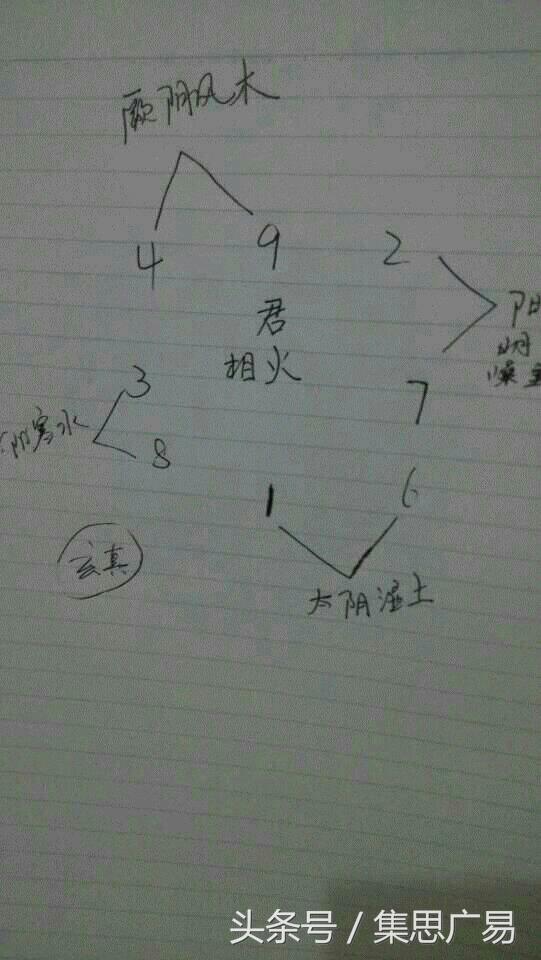 厥阴风木
4 9 2
君
相火
阳
明
燥金
3
7
阴寒水
8
1 6
玄真
太阴湿土
头条号 / 集思广易